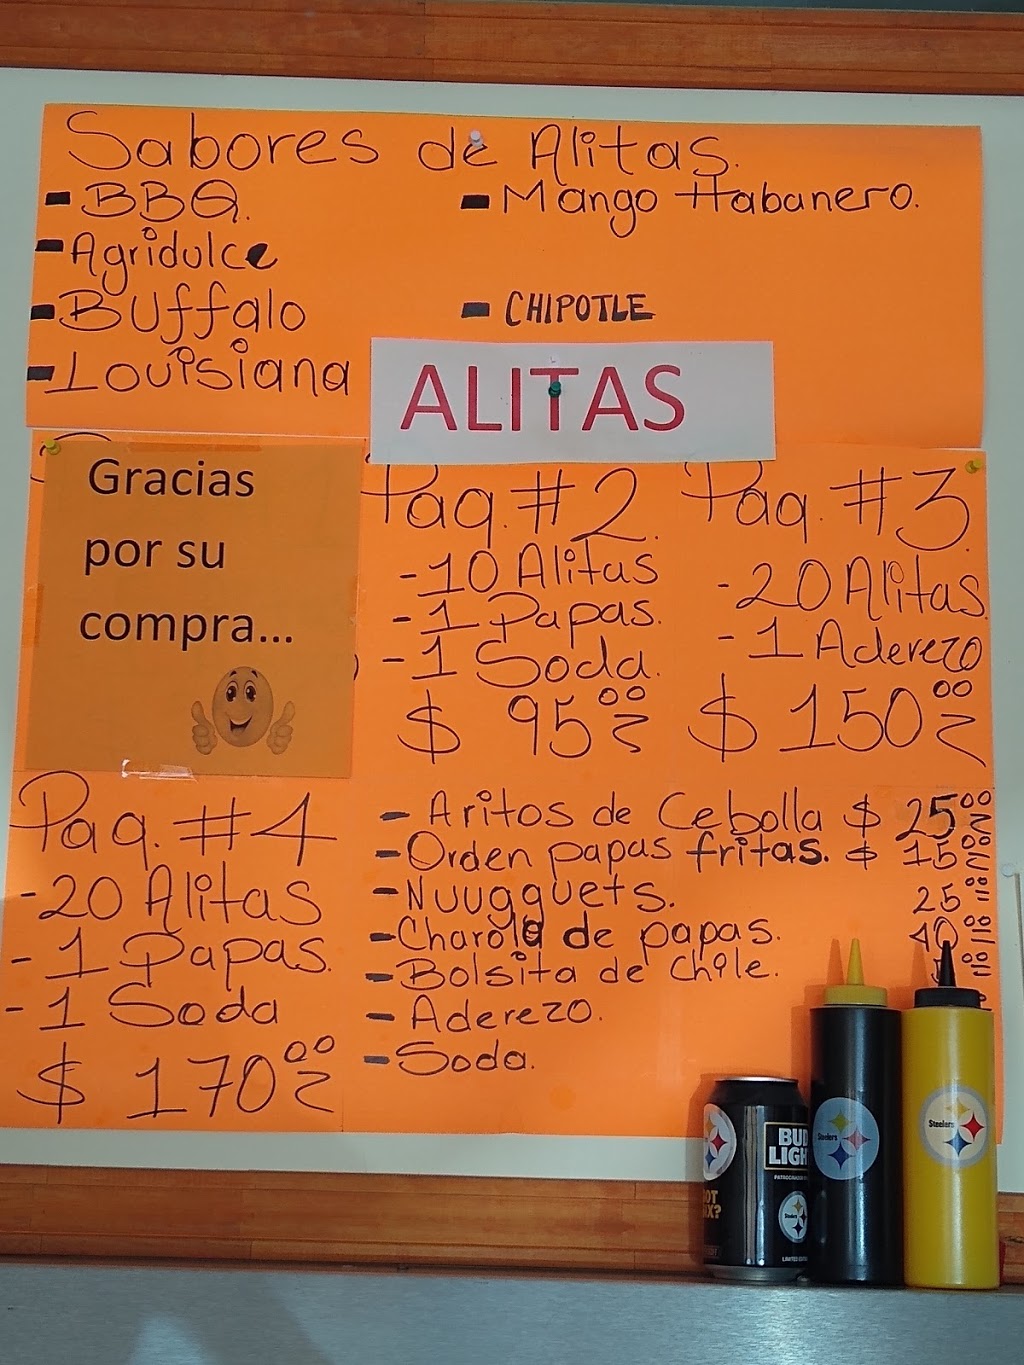 Sabores de Alitas.
- BBQ.
- Mango Habanero.
- Agridulce
- Buffalo
- CHIPOTLE
- Louisiana
ALITAS
Gracias
por su
compra...
Paq. #2.
- 10 Alitas
- 1 Papas.
- 1 Soda.
$ 95.00
Paq. #3.
- 20 Alitas.
- 1 Aderezo
$ 150.00
Paq. #4
- 20 Alitas
- 1 Papas.
- 1 Soda
$ 170.00
- Aritos de Cebolla $ 25.00
- Orden papas fritas. $ 15.00
- Nuugguets. 25.00
- Charola de papas. 40
- Bolsita de chile.
- Aderezo.
- Soda.
BUD
LIGH
Steelers
Steelers
Steelers